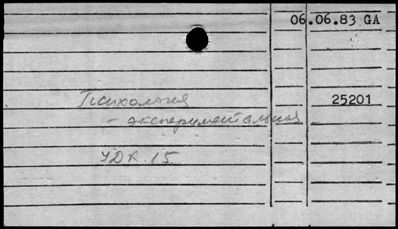 06.06.83 GA
Психология 25201
- экспериментальная
УДК 15.